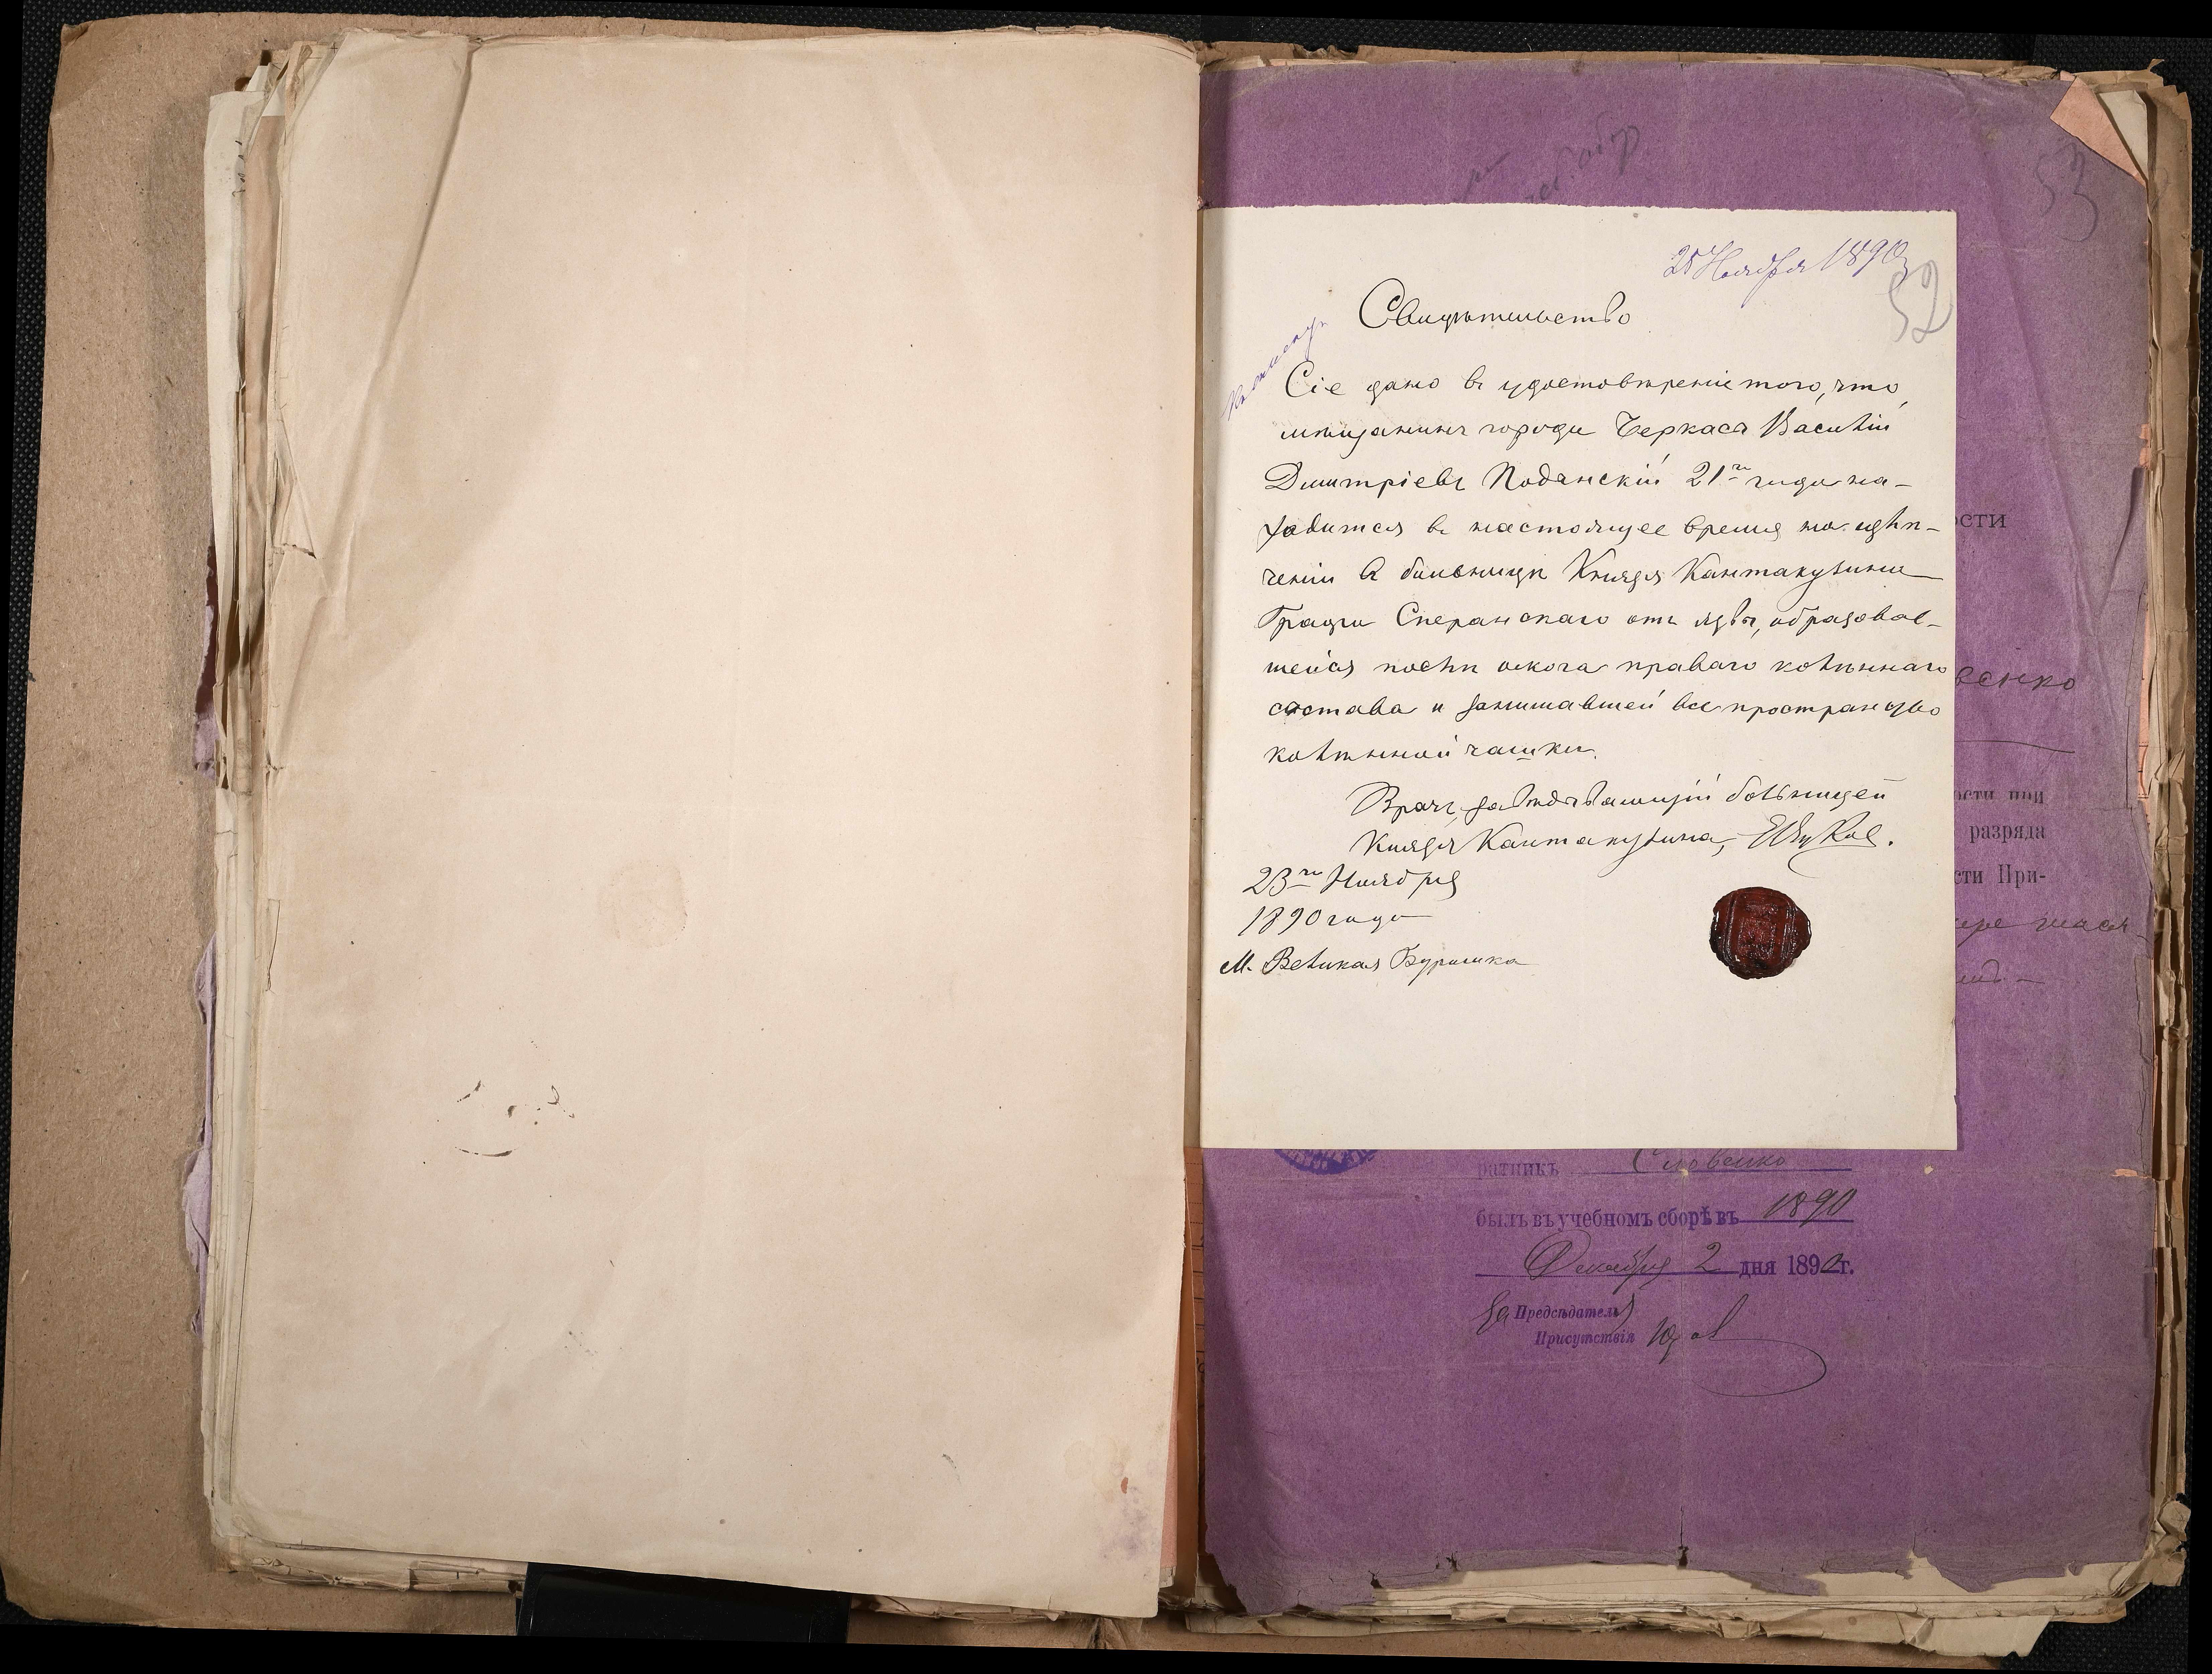 53
25 Ноября 1890
52
Свидѣтельство
Сіе дано въ удостовѣреніе того, что
мѣщанинъ города Черкасъ Василій
Дмитріевъ 21го года на-
ходится въ настоящее время на излѣ-
ченіи въ больницѣ Князя Кантакузина
Графа Сперанскаго отъ язвы, образовав-
шейся послѣ ожога праваго колѣннаго
состава и занимавшей все пространство
колѣнной чашки.
Врачъ, завѣдывающій больницей
Князя Кантакузина,
23го Ноября
1890 года
М. Великая Буримка
ости
венко
ости при
разряда
сти При-
ратникъ
былъ въ учебномъ сборѣ въ 1890
Декабря 2 дня 1890 г.
За Предсѣдатель
Присутствія